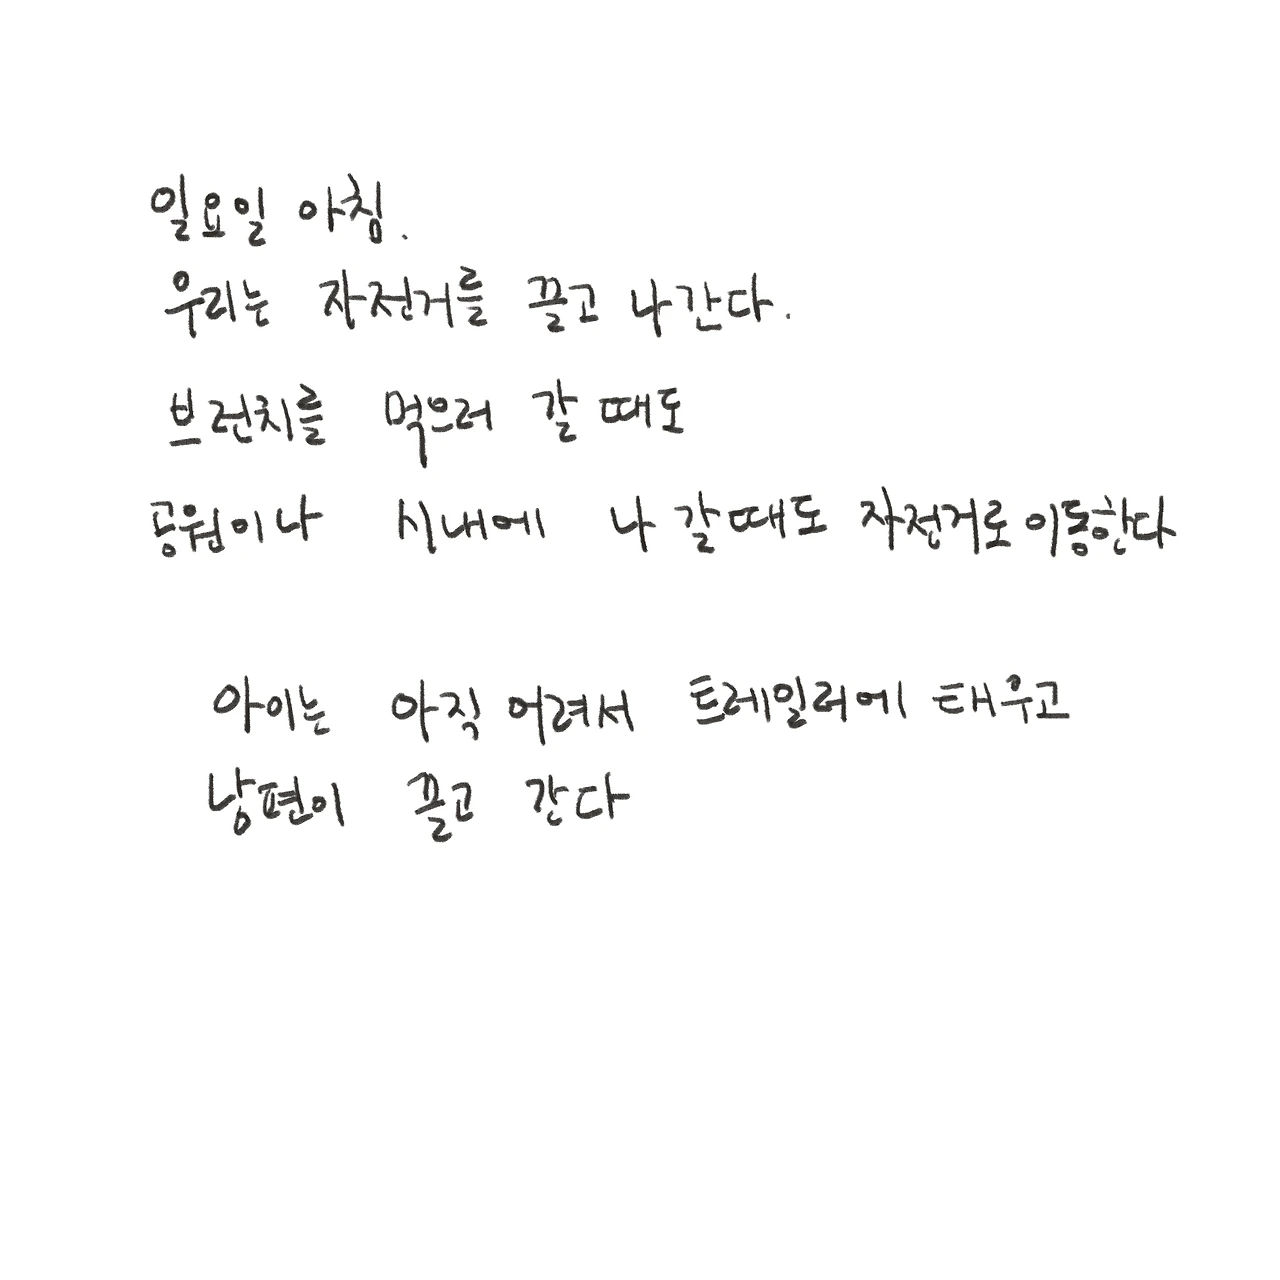 일요일 아침.
우리는 자전거를 끌고 나간다.
브런치를 먹으러 갈 때도
공원이나 시내에 나 갈때도 자전거로 이동한다
아이는 아직 어려서 트레일러에 태우고
남편이 끌고 간다